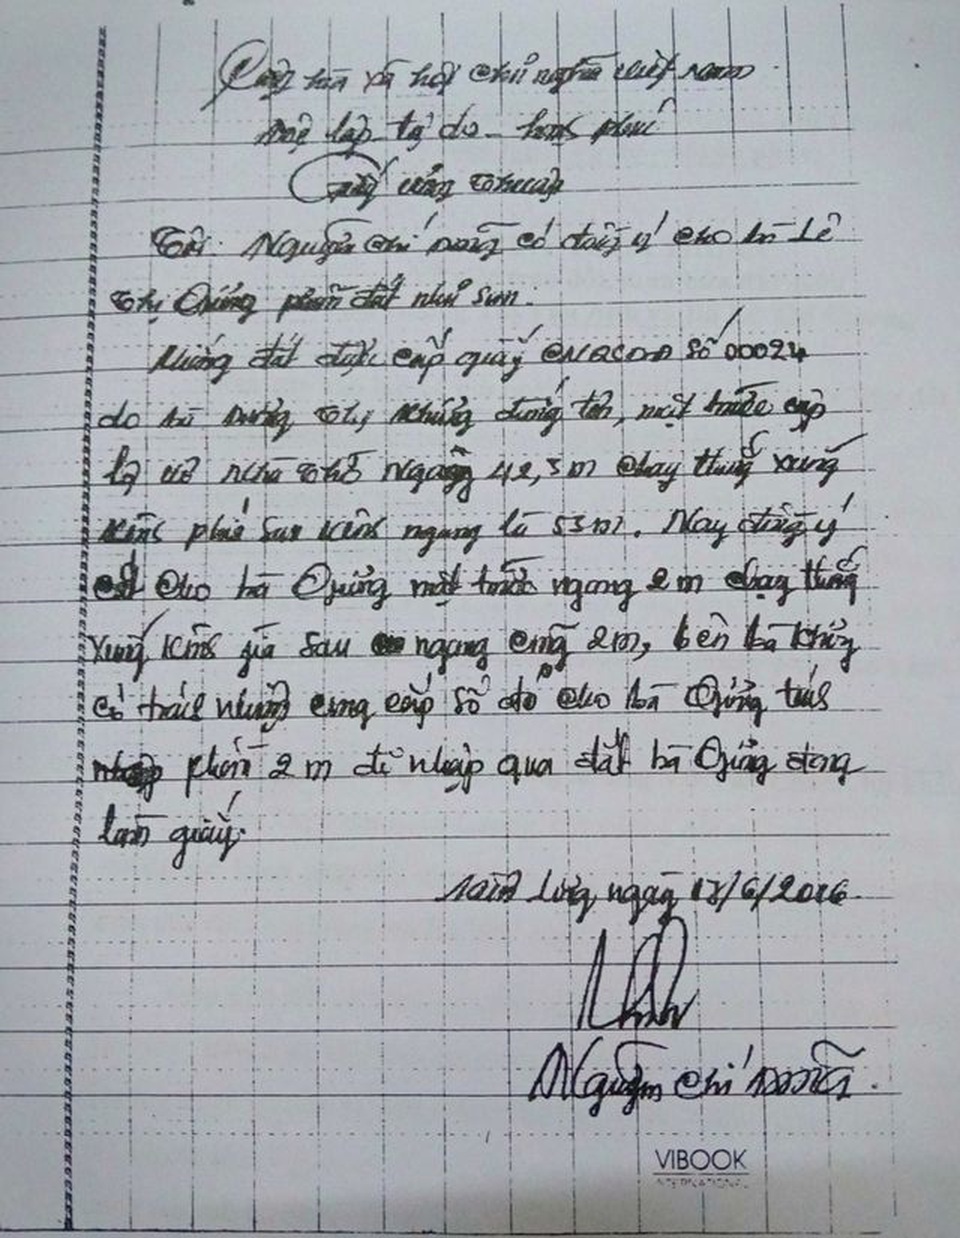 Cộng hòa xã hội chủ nghĩa việt nam
Độc lập tự do - hạnh phúc
Giấy thỏa thuận
Tôi: Nguyễn chí có đồng ý cho bà Lê
Thị Quảng phần đất như sau.
đất được cấp giấy CNQSDĐ Số 00024
do bà Dương Thị Khứng đứng tên, mặt trước cặp
lộ Nhà Thờ Ngang 42,3m chạy thẳng xuống
kênh phía sau kênh ngang là 53m. Nay đồng ý
cắt cho bà Quảng mặt trước ngang 2m chạy thẳng
xuống kênh phía sau ngang cũng 2m, bên bà Khứng
có trách nhiệm cung cấp Sổ đỏ cho bà Quảng tách
phần 2m để nhập qua đất bà Quảng đang
làm giấy.
ngày 18/6/2016
Nguyễn chí
VIBOOK
INTERNATIONAL